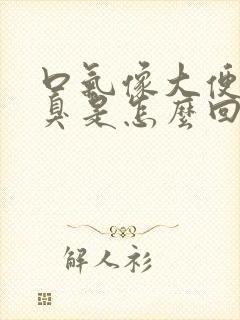 口氣像大便
臭是怎麼回
解人衫